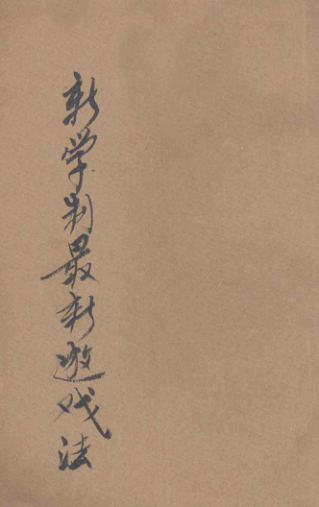 新学制最新遊戏法